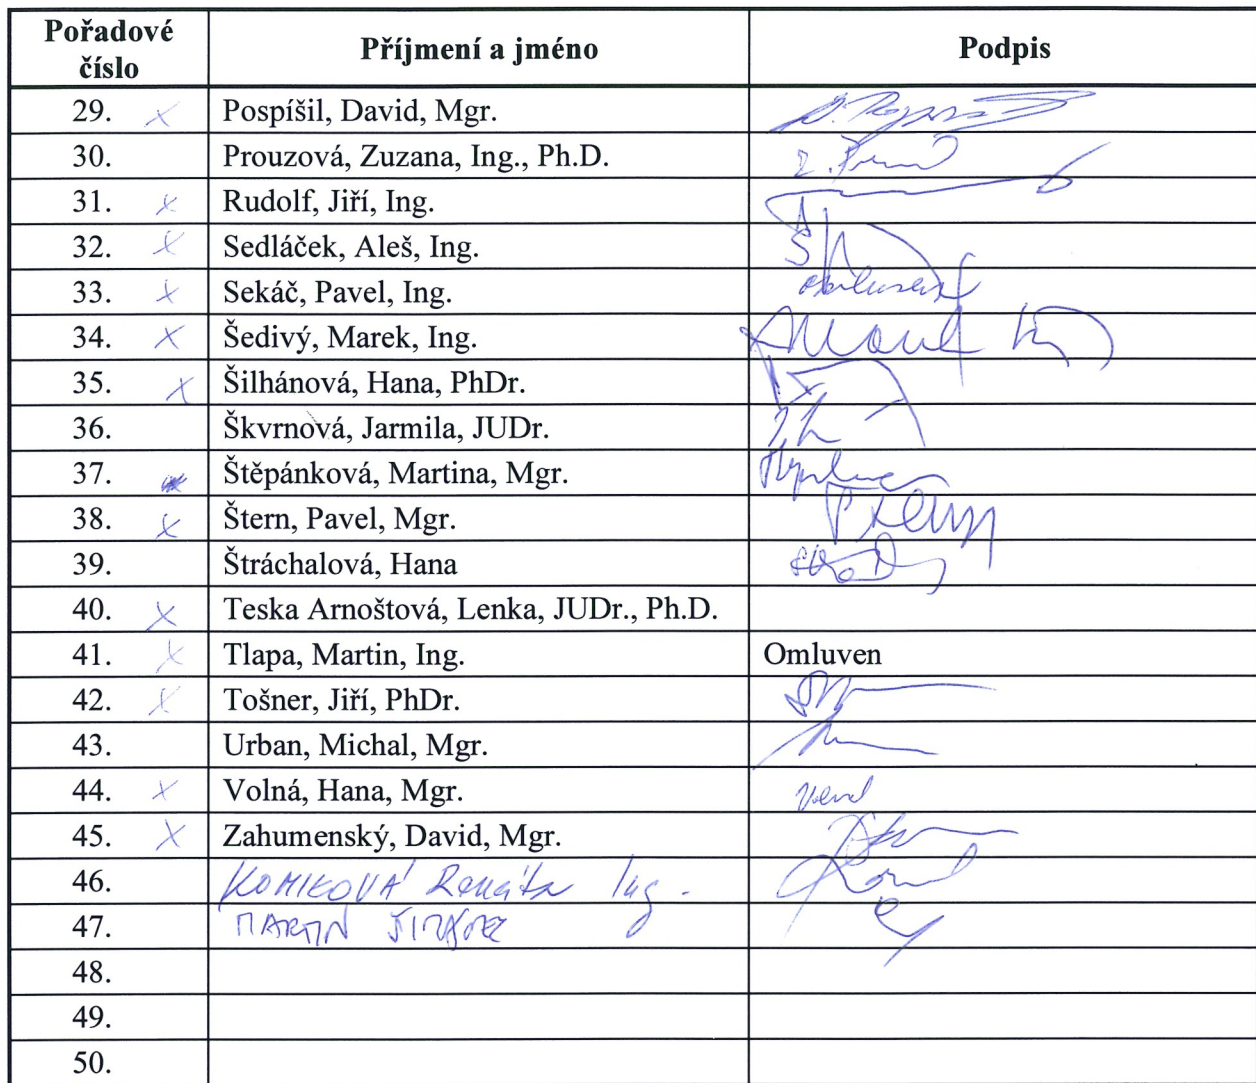 Pořadové číslo Příjmení a jméno Podpis
29. x Pospíšil, David, Mgr.
30. Prouzová, Zuzana, Ing., Ph.D.
31. x Rudolf, Jiří, Ing.
32. x Sedláček, Aleš, Ing.
33. x Sekáč, Pavel, Ing.
34. x Šedivý, Marek, Ing.
35. x Šilhánová, Hana, PhDr.
36. Škvrnová, Jarmila, JUDr.
37. Štěpánková, Martina, Mgr.
38. x Štern, Pavel, Mgr.
39. Štráchalová, Hana
40. x Teska Arnoštová, Lenka, JUDr., Ph.D.
41. x Tlapa, Martin, Ing. Omluven
42. x Tošner, Jiří, PhDr.
43. Urban, Michal, Mgr.
44. x Volná, Hana, Mgr.
45. x Zahumenský, David, Mgr.
46. Renáta Ing.
47. MARTIN
48.
49.
50.